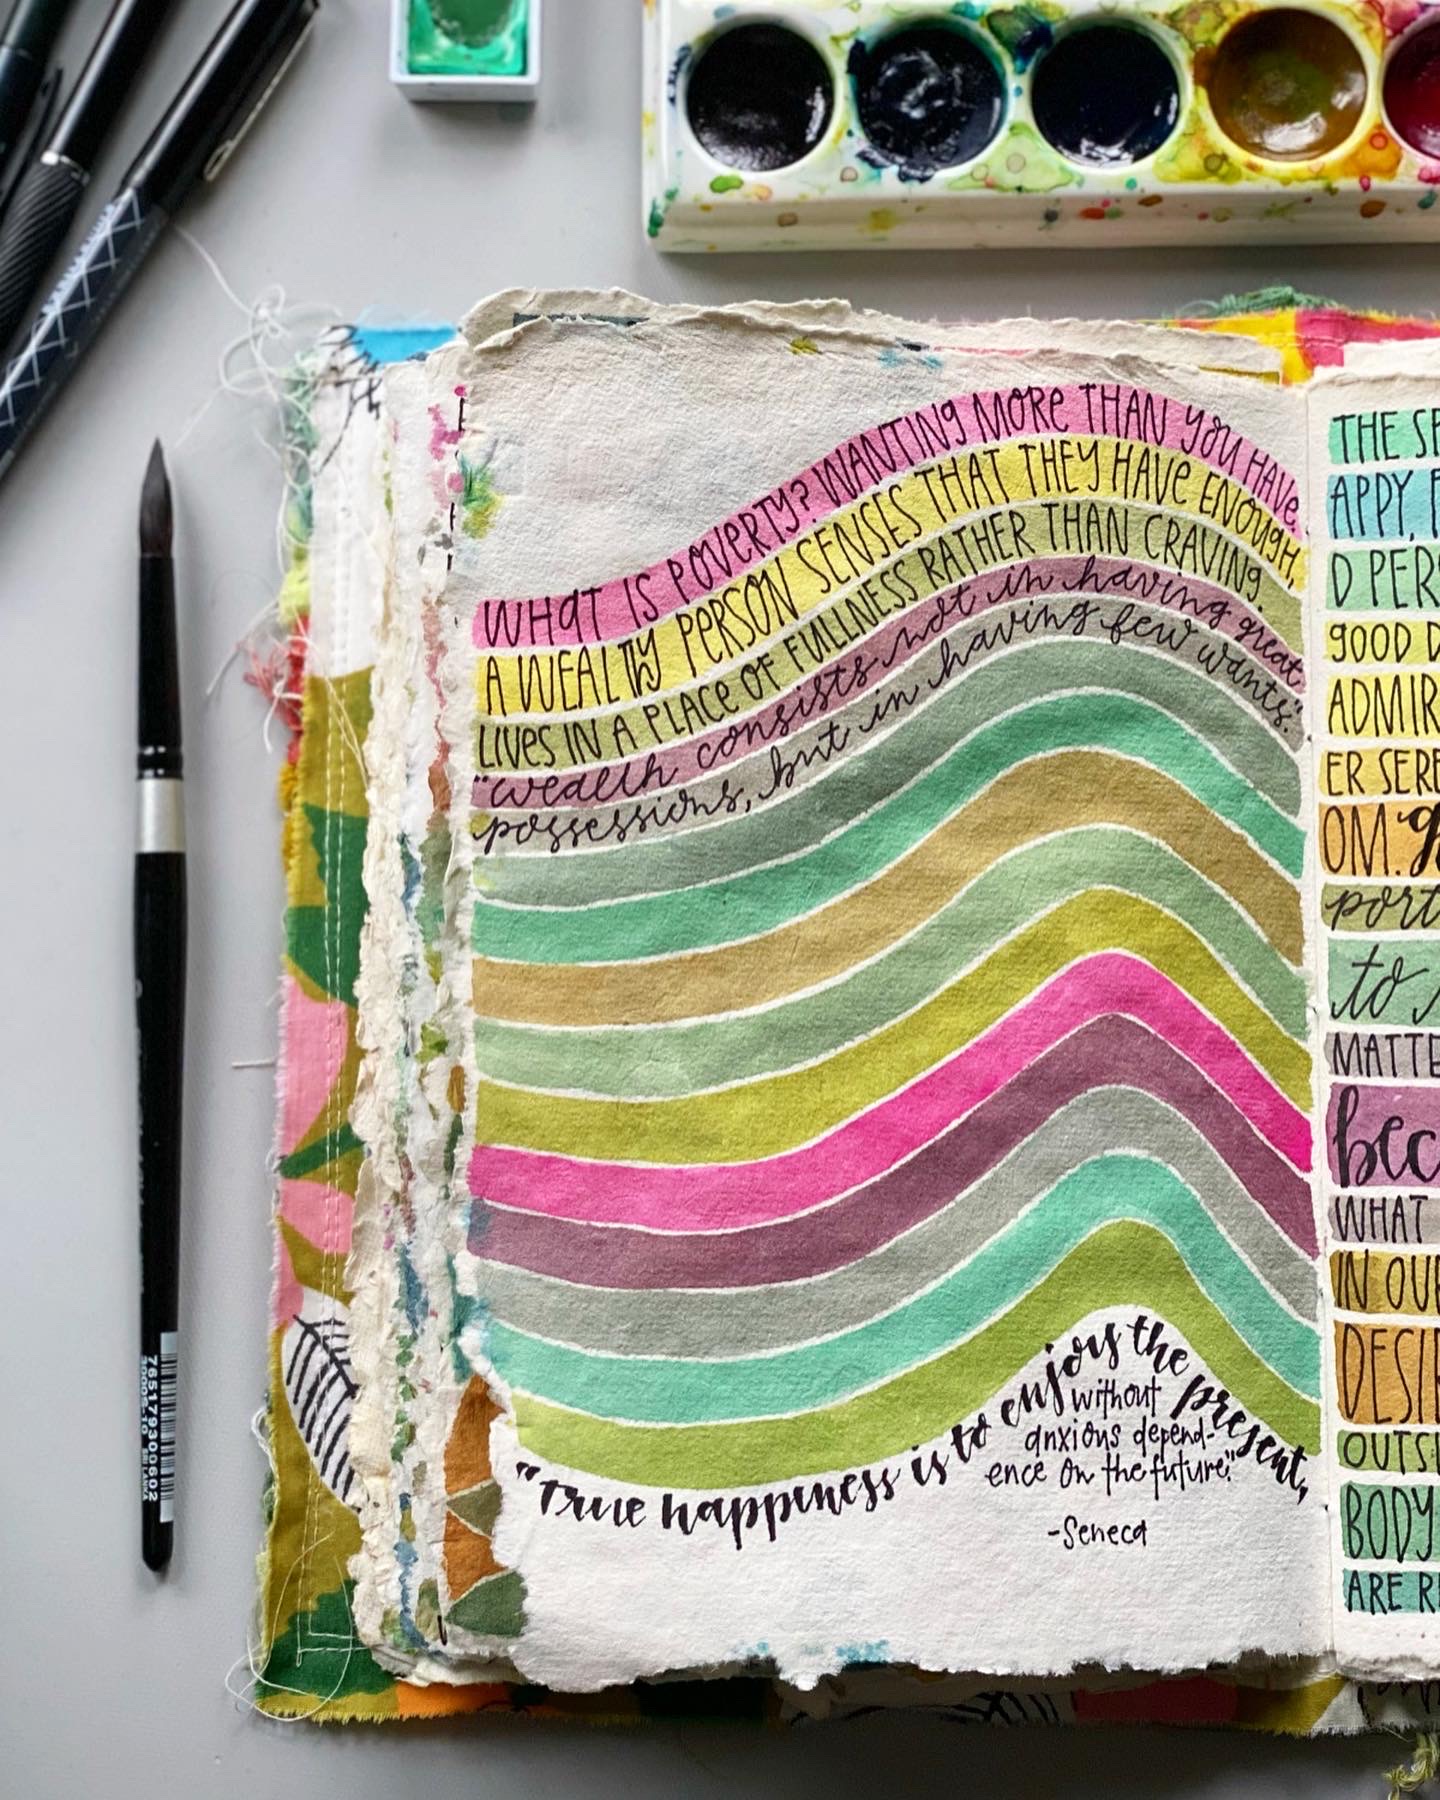 WHAT IS POVERTY? WANTING MORE THAN YOU HAVE.
A WEALTHY PERSON SENSES THAT THEY HAVE ENOUGH,
LIVES IN A PLACE OF FULLNESS RATHER THAN CRAVING.
"wealth consists not in having great
possessions, but in having few wants."
"True happiness is to enjoy the present,
without
anxious depend-
ence on the future."
-Seneca
THE SP
APPY,
D PER
GOOD D
ADMIR
ER SERE
OM.
port
to
MATTE
bec
WHAT
IN OUR
DESIR
OUTSI
BODY
ARE RE
765179300602